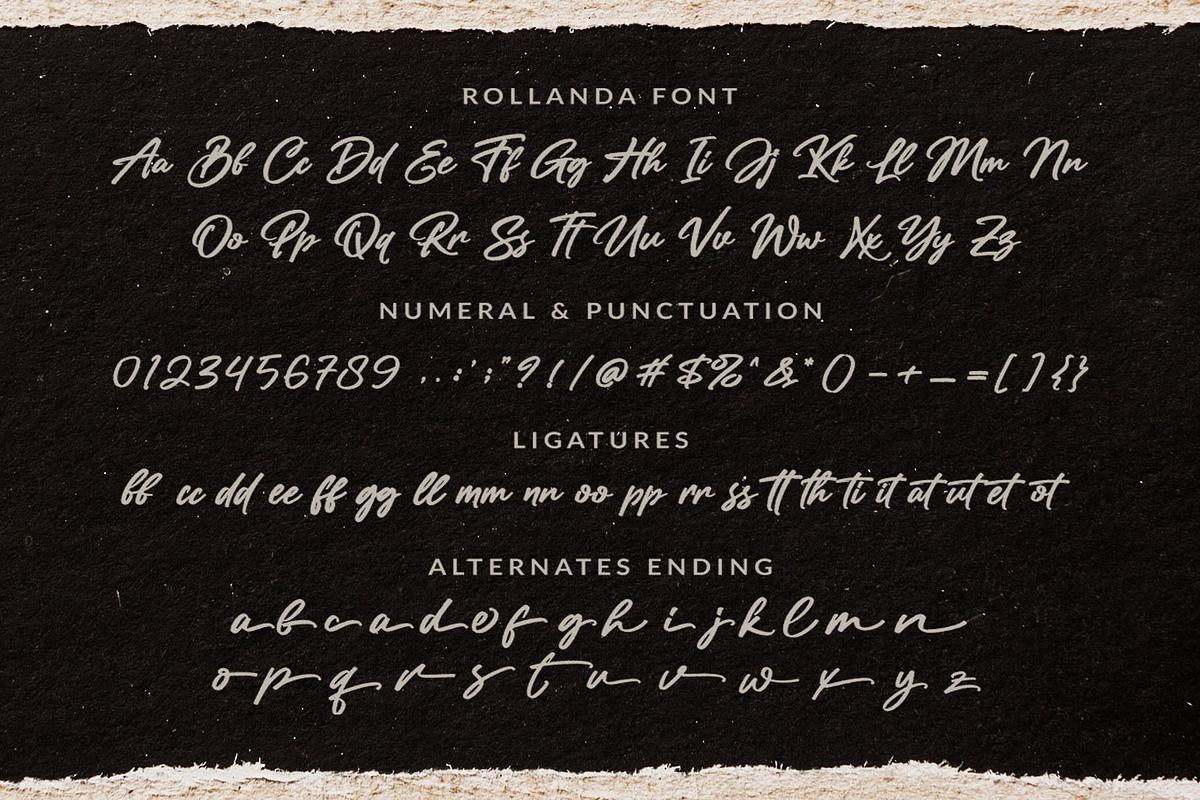 ROLLANDA FONT
Aa Bb Cc Dd Ee Ff Gg Hh Ii Jj Kk Ll Mm Nn
Oo Pp Qq Rr Ss Tt Uu Vv Ww Xx Yy Zz
NUMERAL & PUNCTUATION
0123456789 ,.:';"?!/@#$%^&*()-+_=[]{}
LIGATURES
bb cc dd ee ff gg ll mm nn oo pp rr ss tt th ti it at ut et ot
ALTERNATES ENDING
a b c a d e f g h i j k l m n
o p q r s t u v w x y z